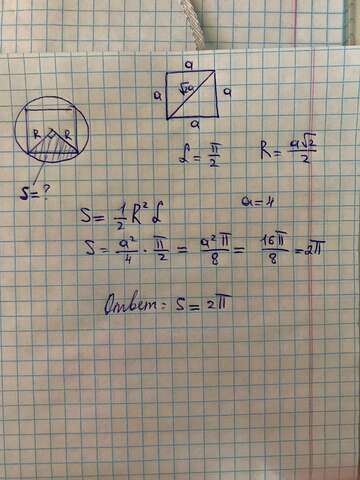 a
a √2a a
a
R R
S=?
L = π/2 R = a√2/2
S = 1/2 R² L a=4
S = a²/4 · π/2 = a²π/8 = 16π/8 = 2π
Ответ: S = 2π